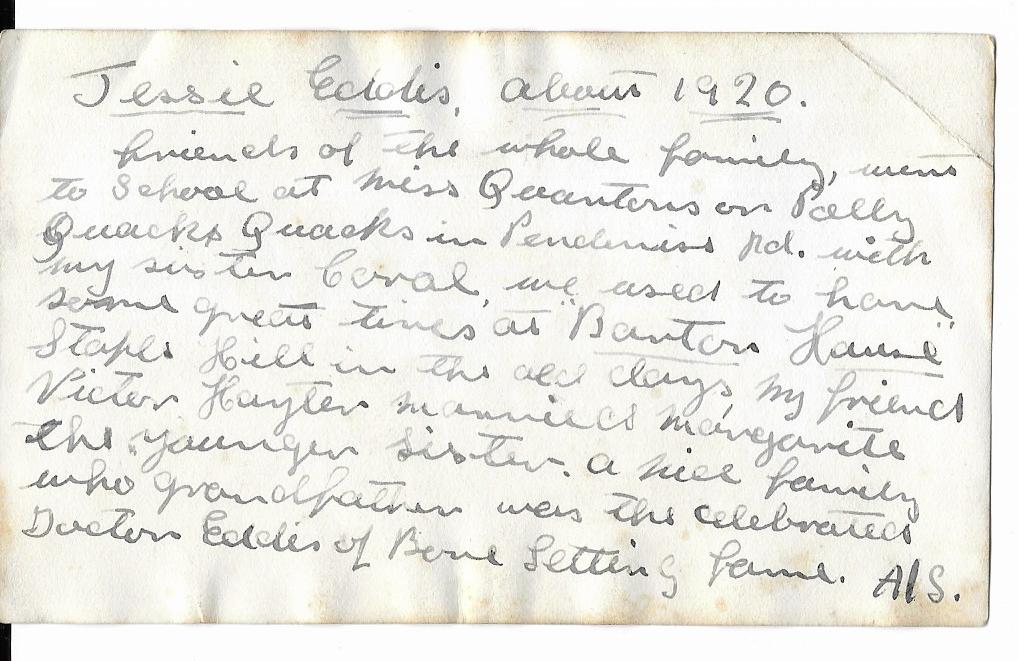 Jessie Eddis, about 1920.
friends of the whole family, went
to School at Miss Quantons or Polly
Quacks Quacks in Pendennis Rd. with
my sister Coral, we used to have
some great times at "Banton House"
Staple Hill in the old days, my friend
Victor Hayter married Margarite
the younger sister. a nice family
who grandfather was the celebrated
Doctor Eddis of Bone Setting fame. A/S.